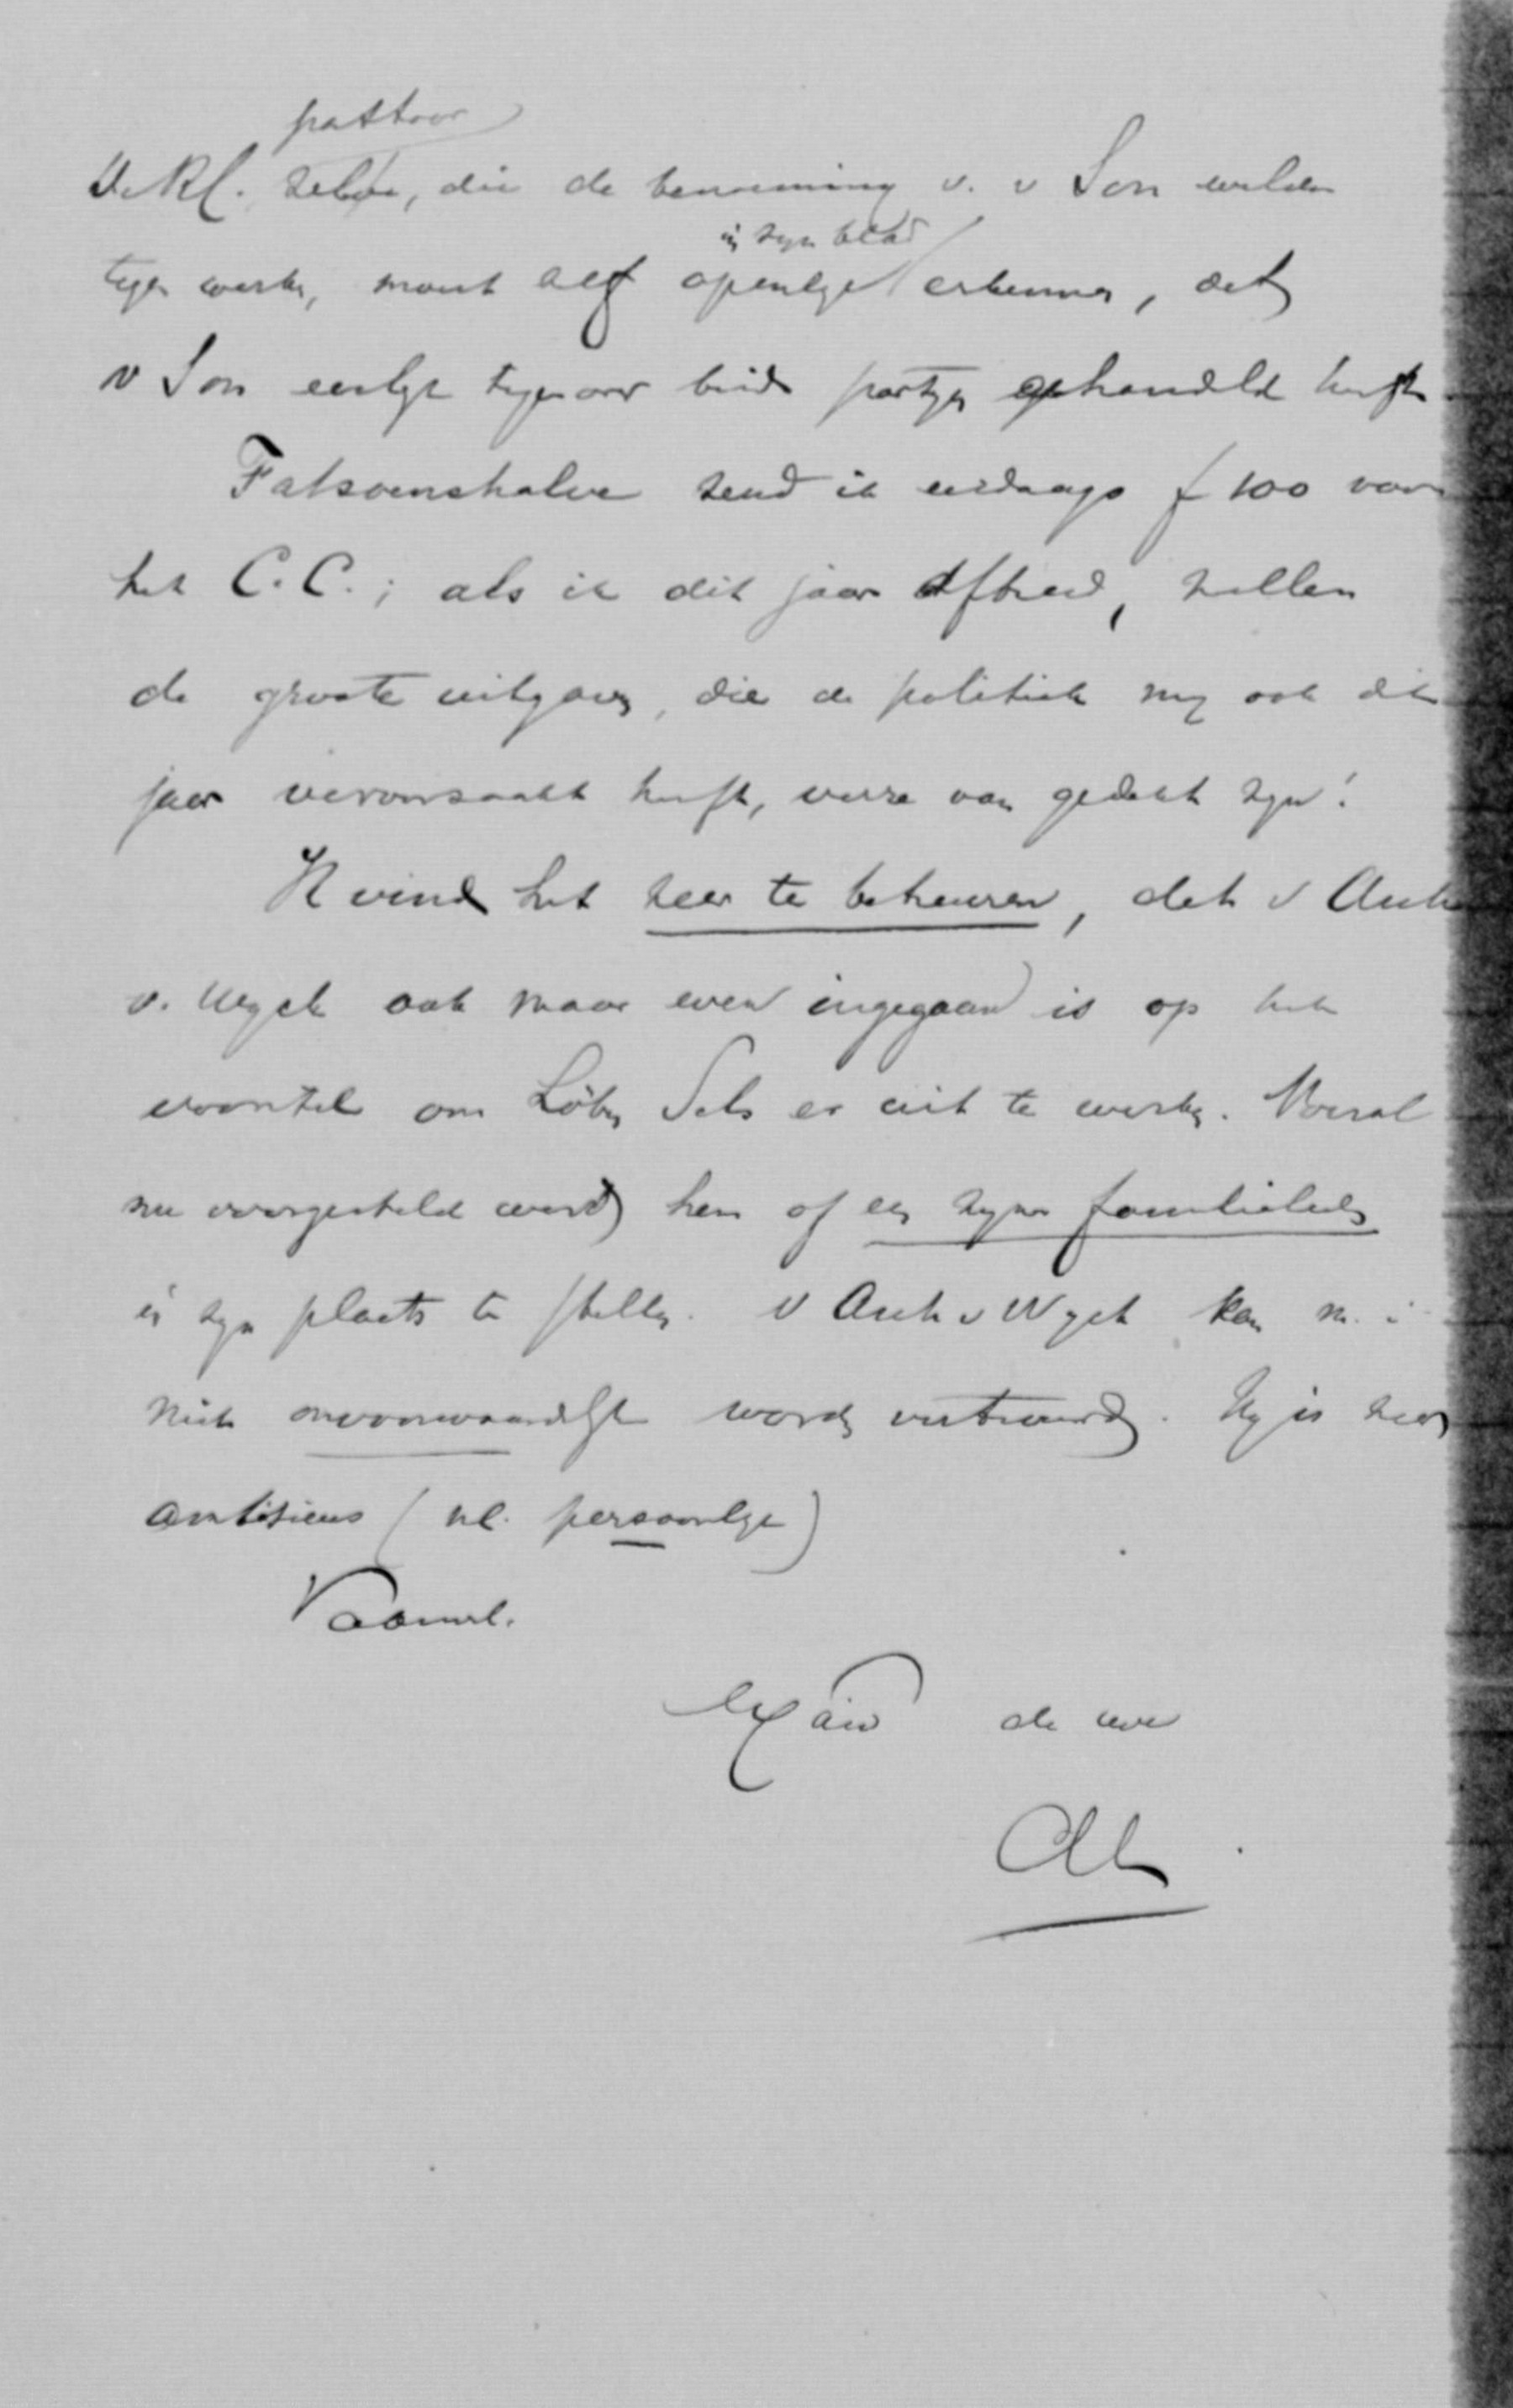 pastoor
De Rl. zelve, die de benoeming v. v Son wilde
tegen werken, moest zelf openlijk erkennen, dat
in zijn blad
v Son eerlijk tegenover beide partijen gehandeld heeft.
Fatsoenshalve zend ik eerdaags f 100 voor
het C.C.; als ik dit jaar aftreed, zullen
de groote uitgaven, die de politiek mij ook dit
jaar veroorzaakt heeft, verre van gedekt zijn!
Ik vind het zeer te betreuren, dat v Asch
v. Wijck ook maar even ingegaan is op het
voorstel om Löben Sels er uit te werken. Vooral
nu voorgesteld werd hem of een zijner familieleden
in zijn plaats te stellen. v Asch v Wijck kan m. i.
niet onvoorwaardelijk worden vertrouwd. Hij is zeer
ambitieus (nl. persoonlijk)
Vaarwel.
de uwe